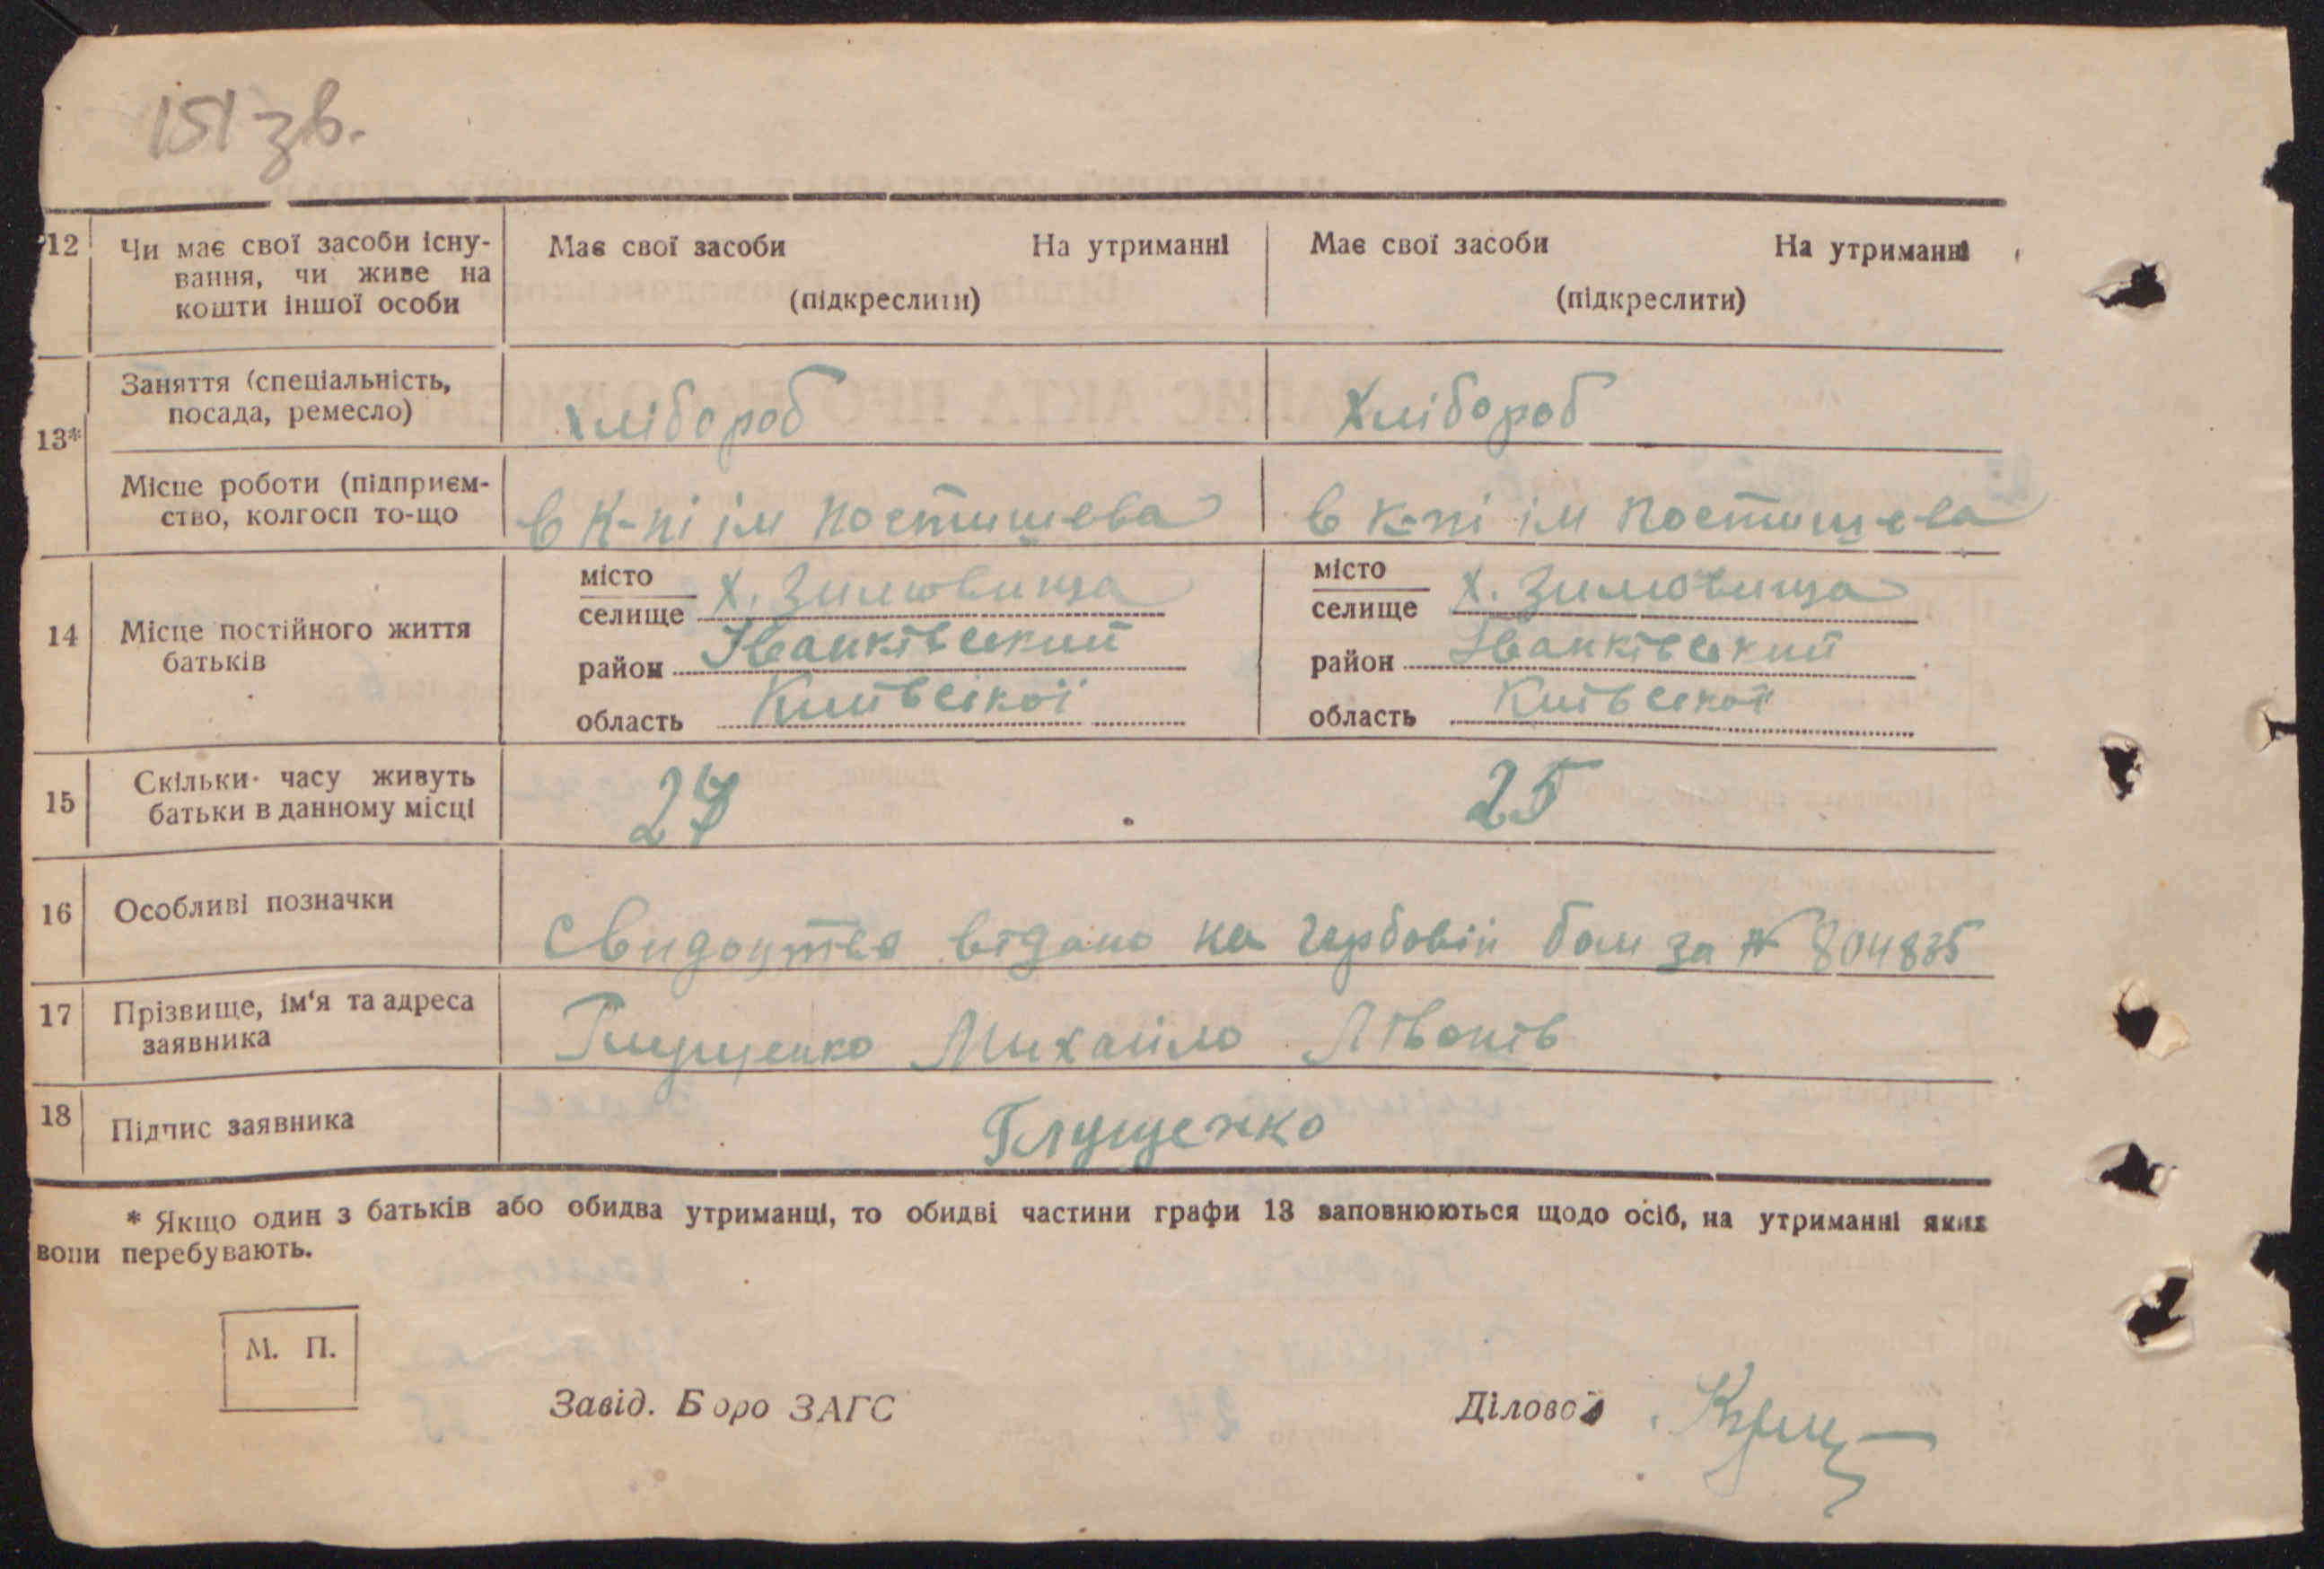 151 зв.
12 Чи має свої засоби існу-
вання, чи живе на
кошти іншої особи
Має свої засоби На утриманні
(підкреслити)
Має свої засоби На утриманні
(підкреслити)
13*
Заняття (спеціальність,
посада, ремесло)
Хлібороб
Хлібороб
Місце роботи (підприєм-
ство, колгосп то-що
в к-пі ім Постишева
в к-пі ім Постишева
14 Місце постійного життя
батьків
місто
селище Х. Зимовища
район Іванківський
область Київської
місто
селище Х. Зимовища
район Іванківський
область Київської
15 Скільки часу живуть
батьки в данному місці
27
25
16 Особливі позначки
Свидоцтво відано на гербовій бом за № 804835
17 Прізвище, ім'я та адреса
заявника
Глущенко Михайло
18 Підпис заявника
Глущенко
* Якщо один з батьків або обидва утриманці, то обидві частини графи 13 заповнюються щодо осіб, на утриманні яких
вони перебувають.
М. П.
Завід. Бюро ЗАГС
Діловод